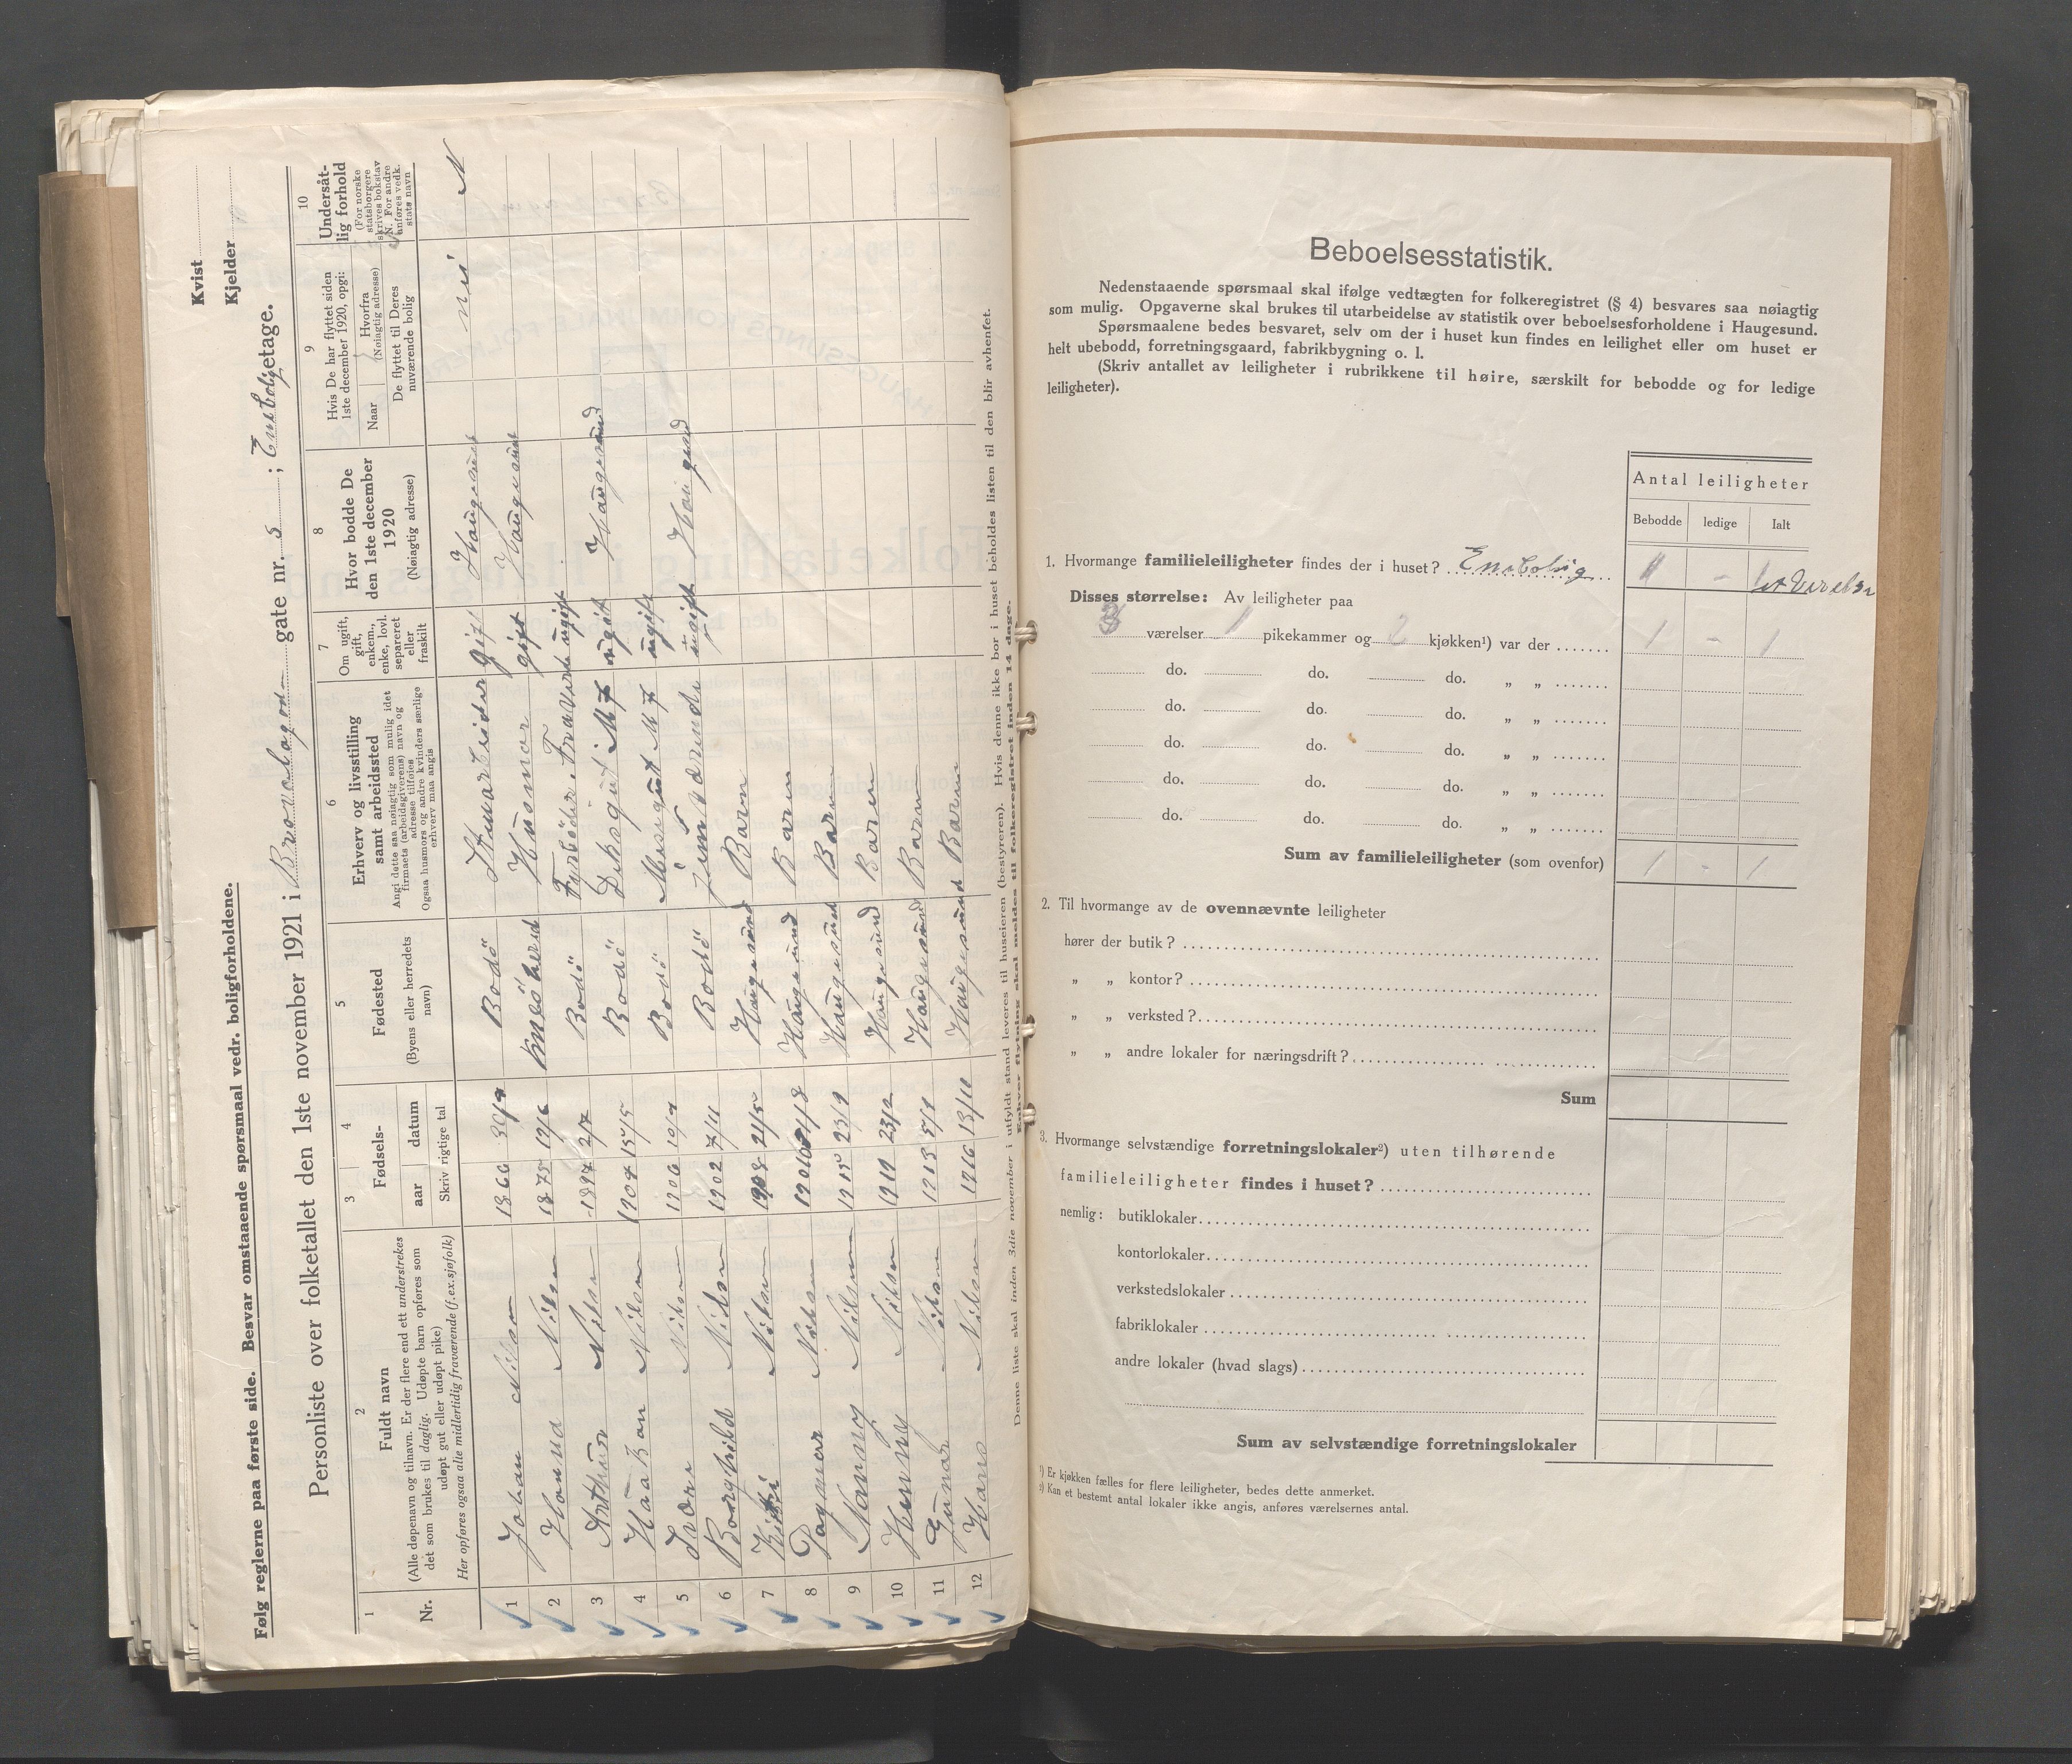 Følg reglerne paa første side. Besvar omstaaende spørsmaal vedr. boligforholdene.
Kvist
Kjelder
Personliste over folketallet den 1ste november 1921 i gate nr. 5 ; Enebolig etage.
1 2 3 4 5 6 7 8 9 10
Nr.
Fuldt navn
(Alle døpenavn og tilnavn. Er der flere end ett understrekes
det som brukes til daglig. Udøpte barn opføres som
udøpt gut eller udøpt pike)
Her opføres ogsaa alle midlertidig fraværende (f.ex. sjøfolk)
Fødsels-
aar datum
Skriv rigtige tal
Fødested
(Byens eller herredets
navn)
Erhverv og livsstilling
samt arbeidssted
Angi dette saa nøiagtig som mulig idet
firmaets (arbeidsgiverens) navn og
adresse tilføies
Ogsaa husmors og andre kvinders særlige
erhverv maa angis
Om ugift,
gift,
enkem.,
enke, lovl.
separeret
eller
fraskilt
Hvor bodde De
den 1ste december
1920
(Nøiagtig adresse)
Hvis De har flyttet siden
1ste december 1920, opgi:
Naar
Hvorfra
(Nøiagtig adresse)
De flyttet til Deres
nuværende bolig
Undersåt-
lig forhold
(For norske
statsborgere
skrives bokstav
N. For andre
anføres vedk.
stats navn
1 Johan Nilsen 1866 30/9 Bodö gift Haugesund nei N
2 Hanna Nilsen 1875 19/6 Husmor gift Haugesund
3 Arthur Nilsen 1897 2/7 Bodö Fyrböder ugift
4 Haakon Nilsen 1904 15/5 Bodö Deksgut ugift Haugesund
5 Nilsen 1906 19/9 Bodö ugift
6 Borghild Nilsen 1902 7/11 Bodö ugift Haugesund
7 Nilsen 1908 21/5 Haugesund Barn
8 Dagmar Nilsen 1910 Haugesund Barn
9 Nanny Nilsen 1915 23/9 Haugesund Barn
10 Henny Nilsen 1919 23/2 Haugesund Barn
11 Gunar Nilsen 1913 5/9 Haugesund Barn
12 Hans Nilsen 1916 13/10 Haugesund Barn
Denne liste skal inden 3die november i utfyldt stand leveres til huseieren (bestyreren). Hvis denne ikke bor i huset beholdes listen til den blir avhentet.
Enhver flytning skal meldes til folkeregistret inden 14 dage.
Beboelsesstatistik.
Nedenstaaende spørsmaal skal ifølge vedtægten for folkeregistret (§ 4) besvares saa nøiagtig
som mulig. Opgaverne skal brukes til utarbeidelse av statistik over beboelsesforholdene i Haugesund.
Spørsmaalene bedes besvaret, selv om der i huset kun findes en leilighet eller om huset er
helt ubebodd, forretningsgaard, fabrikbygning o. l.
(Skriv antallet av leiligheter i rubrikkene til høire, særskilt for bebodde og for ledige
leiligheter).
Antal leiligheter
Bebodde ledige Ialt
1. Hvormange familieleiligheter findes der i huset? Enebolig
Disses størrelse: Av leiligheter paa
3 værelser 1 pikekammer og 2 kjøkken¹) var der 1 - 1
do. do. do. „ „
do. do. do. „ „
do. do. do. „ „
do. do. do. „ „
do. do. do. „ „
Sum av familieleiligheter (som ovenfor) 1 - 1
2. Til hvormange av de ovennævnte leiligheter
hører der butik?
„ „ kontor?
„ „ verksted?
„ „ andre lokaler for næringsdrift?
Sum
3. Hvormange selvstændige forretningslokaler²) uten tilhørende
familieleiligheter findes i huset?
nemlig: butiklokaler
kontorlokaler
verkstedslokaler
fabriklokaler
andre lokaler (hvad slags)
Sum av selvstændige forretningslokaler
¹) Er kjøkken fælles for flere leiligheter, bedes dette anmerket.
²) Kan et bestemt antal lokaler ikke angis, anføres værelsernes antal.